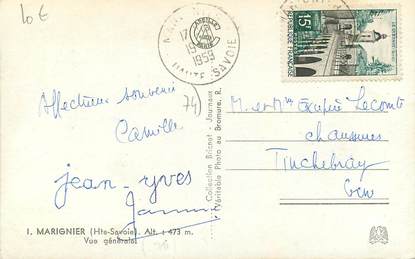 10 €
HAUTE-SAVOIE
1959
15F
REPUBLIQUE FRANÇAISE
Affectueux souvenir
74)
Camille
jean-yves
M. et Mme Exupère Lecomte
chaussures
Tinchebray
Orne
Collection Bricnot - Journaux
Véritable Photo au Bromure. R.
1. MARIGNIER (Hte-Savoie). Alt. : 473 m.
Vue générale